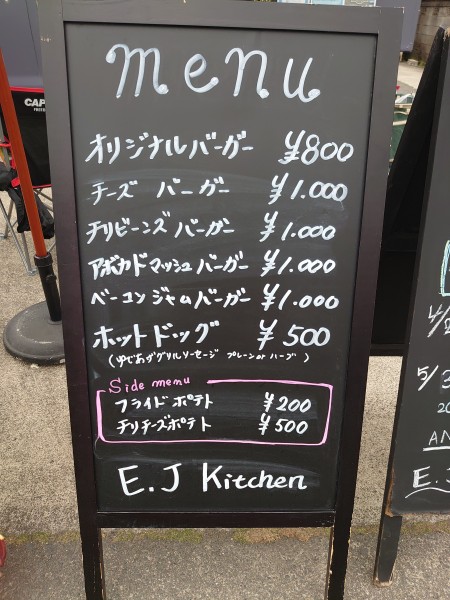 menu
オリジナルバーガー ¥800
チーズ バーガー ¥1.000
チリビーンズバーガー ¥1.000
アボカドマッシュバーガー ¥1.000
ベーコンジャムバーガー ¥1.000
ホットドッグ ¥500
(ゆであげグリルソーセージ プレーン or ハーブ)
Side menu
フライドポテト ¥200
チリチーズポテト ¥500
E.J Kitchen
CAP
4/2
5/3
20
AN
E.J